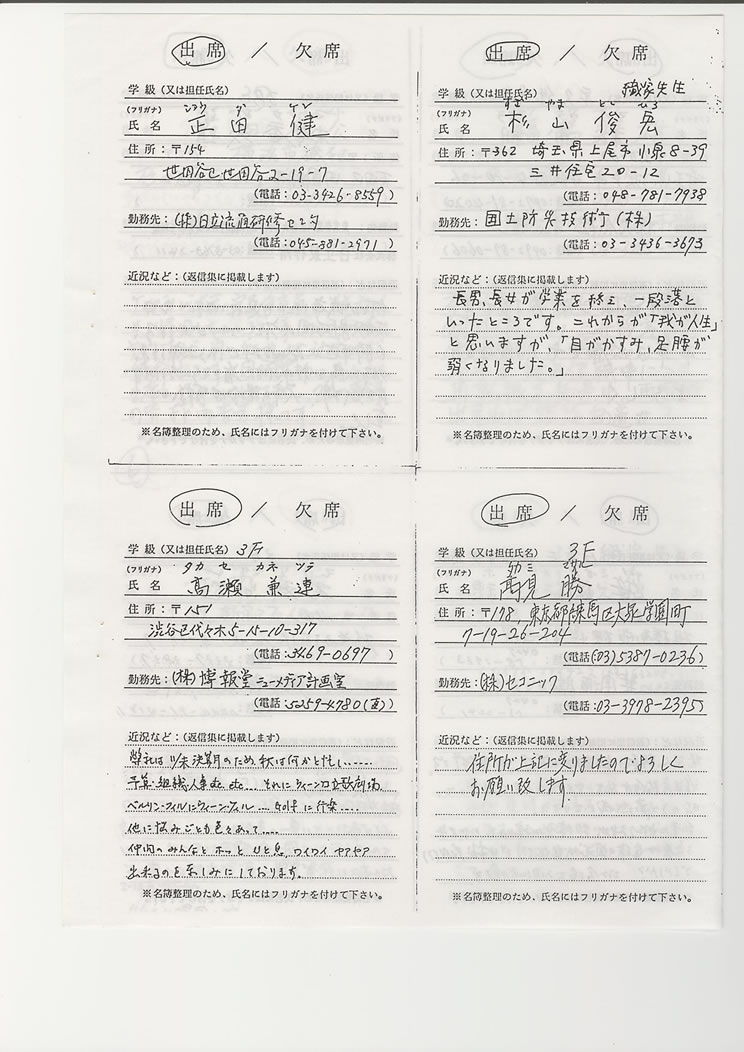 出席 / 欠席
学級(又は担任氏名)
(フリガナ) ショウ ダ ケン
氏名 正田 健
住所:〒154
世田谷区世田谷2-19-7
(電話:03-3426-8559)
勤務先:(株)日立
(電話:045-881-2971)
近況など:(返信集に掲載します)
※名簿整理のため、氏名にはフリガナを付けて下さい。
出席 / 欠席
学級(又は担任氏名) 先生
(フリガナ) すぎ やま とし ひろ
氏名 杉山 俊宏
住所:〒362 埼玉県上尾市小泉8-39
三井住宅20-12
(電話:048-781-7938)
勤務先:国土防災技術(株)
(電話:03-3436-3673)
近況など:(返信集に掲載します)
長男、長女が学業を終え、一段落と
いったところです。これからが「我が人生」
と思いますが、「目がかすみ、足腰が
弱くなりました。」
※名簿整理のため、氏名にはフリガナを付けて下さい。
出席 / 欠席
学級(又は担任氏名) 3F
(フリガナ) タカ セ カネ ツラ
氏名 高瀬 兼連
住所:〒151
渋谷区代々木5-15-10-317
(電話:3469-0697)
勤務先:(株)博報堂 ニューメディア計画室
(電話:5259-4780(直))
近況など:(返信集に掲載します)
弊社は 11/末決算月のため、秋は何かと忙し……
予算・組織人事etc etc… それにウィーン国立歌劇場、
ベルリン・フィルにウィーン・フィル…. Golf に行楽….
他に悩みごとも色々あって…..
仲間のみんなと ホッと ひと息、ワイワイ ヤアヤア
出来るのを楽しみにしております。
※名簿整理のため、氏名にはフリガナを付けて下さい。
出席 / 欠席
学級(又は担任氏名) 3E
(フリガナ) タカ ミ マサル
氏名 高見 勝
住所:〒178 東京都練馬区大泉学園町
7-19-26-204
(電話:(03)5387-0236)
勤務先:(株)セコニック
(電話:03-3978-2395)
近況など:(返信集に掲載します)
住所が上記に変りましたのでよろしく
お願い致します。
※名簿整理のため、氏名にはフリガナを付けて下さい。